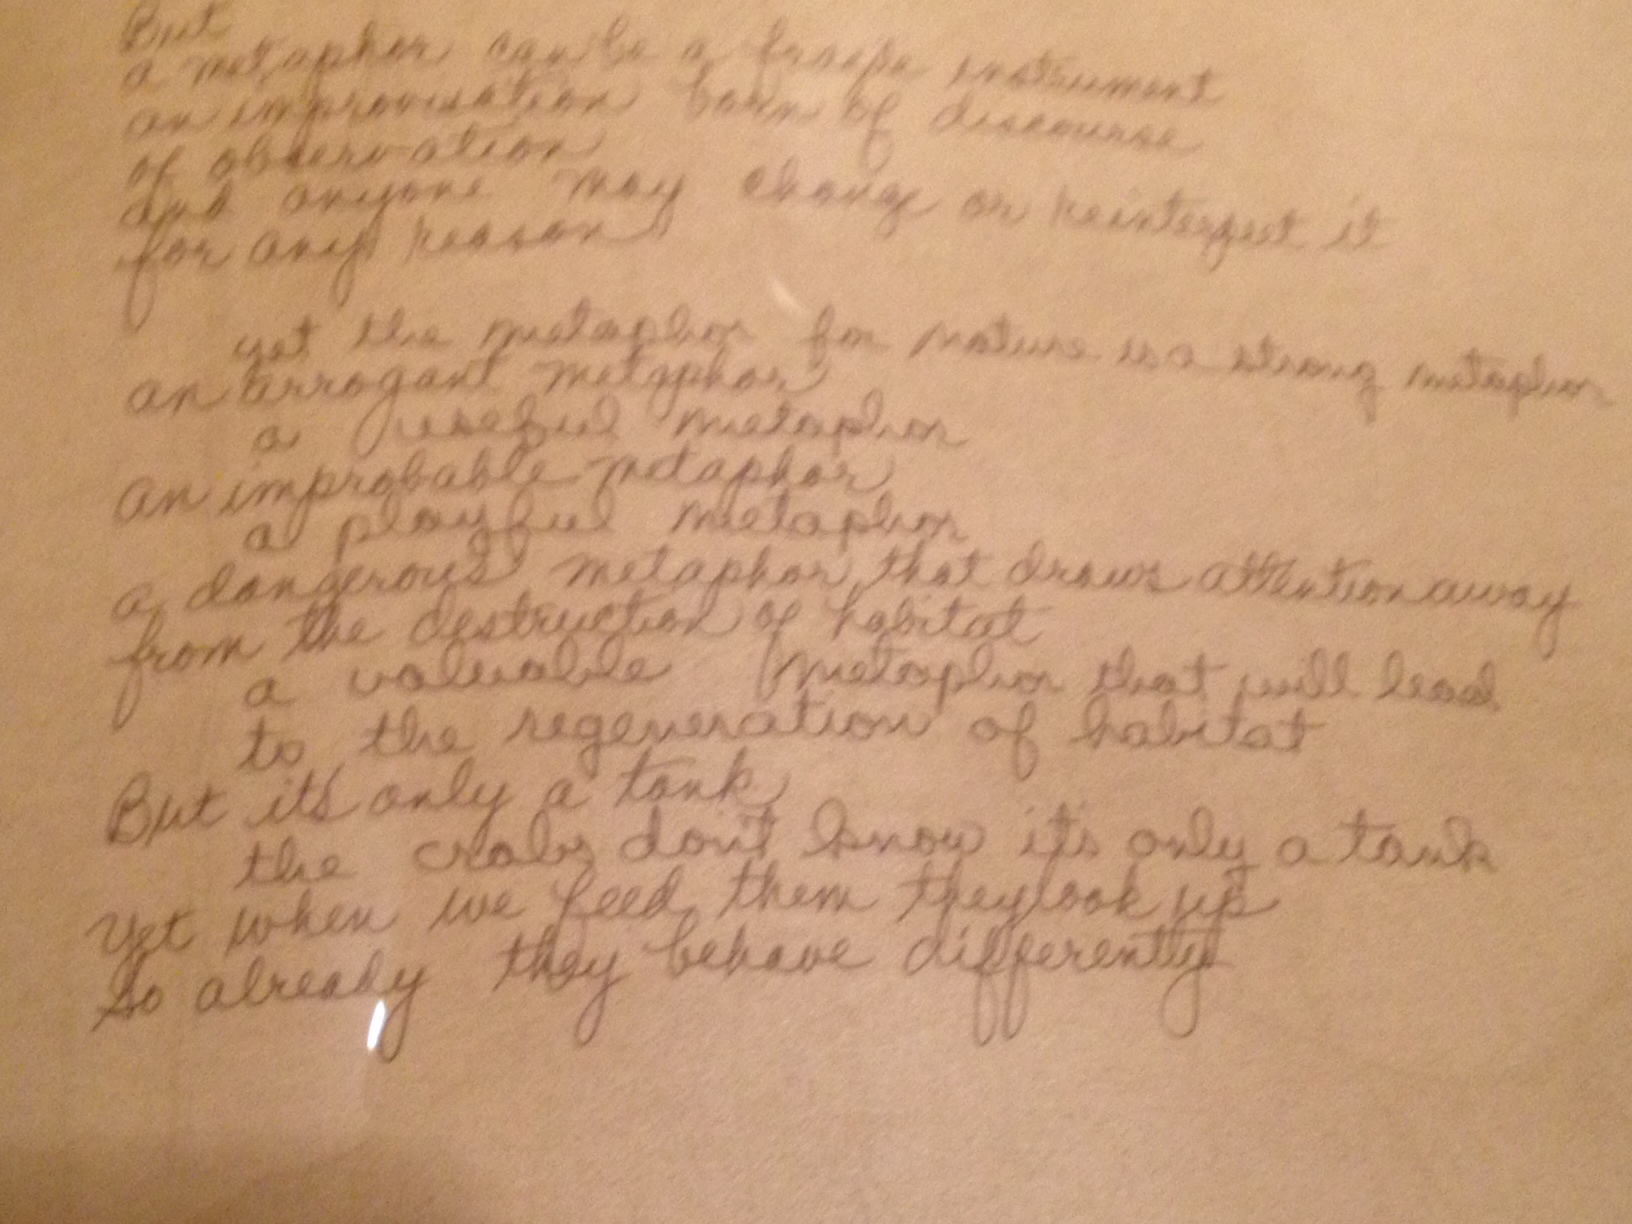 But
a metaphor can be a fragile instrument
an improvisation born of discourse
of observation
and anyone may change or reinterpret it
for any reason
yet the metaphor for nature is a strong metaphor
an arrogant metaphor
a useful metaphor
an improbable metaphor
a playful metaphor
a dangerous metaphor that draws attention away
from the destruction of habitat
a valuable metaphor that will lead
to the regeneration of habitat
But it's only a tank
the crabs don't know it's only a tank
Yet when we feed them they look up
So already they behave differently